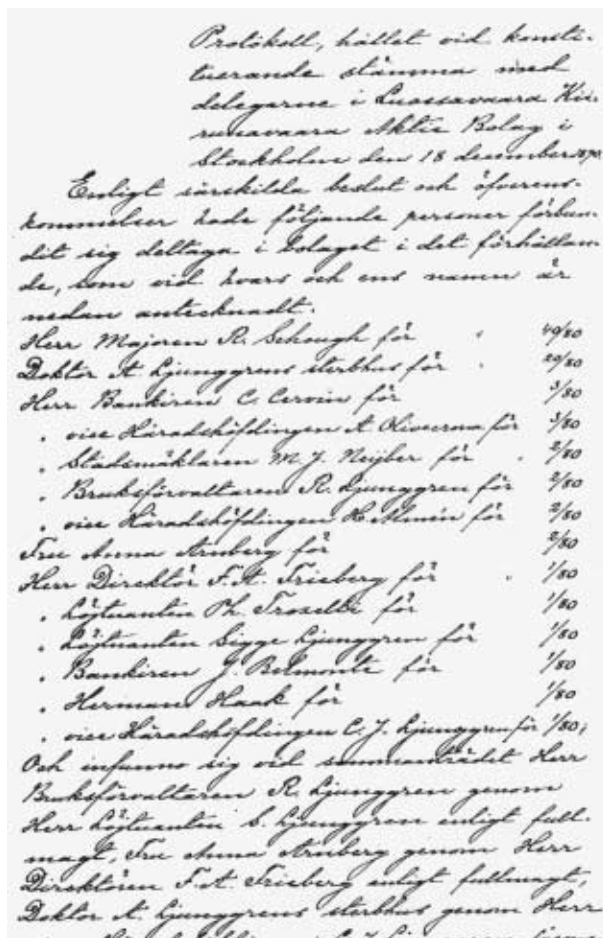 Protokoll, hållet vid konsti-
tuerande stämma med
delegarne i Luossavaara Kii-
runavaara Aktie Bolag i
Stockholm den 18 december 1890.
Enligt särskilda beslut och öfverens-
kommelser hade följande personer förbun-
dit sig deltaga i bolaget i det förhållan-
de, som vid hvars och ens namn är
nedan antecknadt.
Herr Majoren R. Schough för " 40/80
Doktor A. Ljunggrens sterbhus för " 20/80
Herr Bankiren C. Cervin för 3/80
" vice Häradshöfdingen A. Olivecrona för 3/80
" Stadsmäklaren M. J. Neijber för " 2/80
" Bruksförvaltaren R. Ljunggren för 2/80
" vice Häradshöfdingen H. Almén för 2/80
Fru Anna Arnberg för 2/80
Herr Direktör F. A. Frieberg för " 1/80
" Löjtnanten Ph. för 1/80
" Löjtnanten Sigge Ljunggren för 1/80
" Bankiren J. Belmonte för 1/80
" Herman Haak för 1/80
" vice Häradshöfdingen C. J. Ljunggren för 1/80;
Och infunno sig vid sammanträdet Herr
Bruksförvaltaren R. Ljunggren genom
Herr Löjtnanten S. Ljunggren enligt full-
magt, Fru Anna Arnberg genom Herr
Direktören F. A. Frieberg enligt fullmagt,
Doktor A. Ljunggrens sterbhus genom Herr